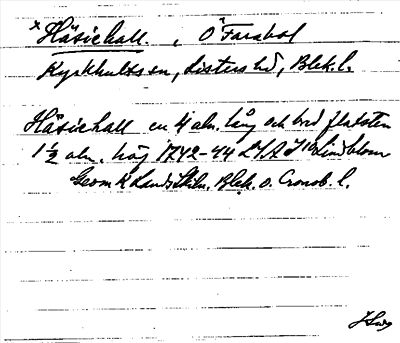 × Häsichall , Ö Farabol
Kyrkhults sn, Listers hd, Blek. l.
Häsichall en 4 aln. lång och bred flatsten
1½ aln. hög 1742-44 Lindblom
Geom K Landtsk. Blek. o. Cronob. l.